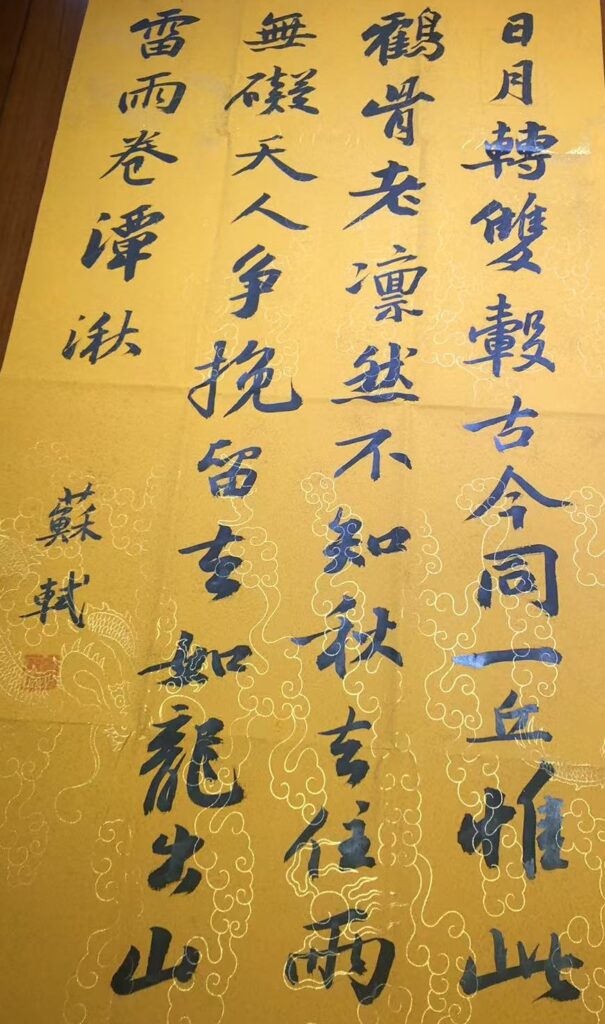 日月轉雙轂古今同一丘惟此
鶴骨老凛然不知秋去住雨
無礙天人争挽留去如龍出山
雷雨卷潭湫
蘇軾